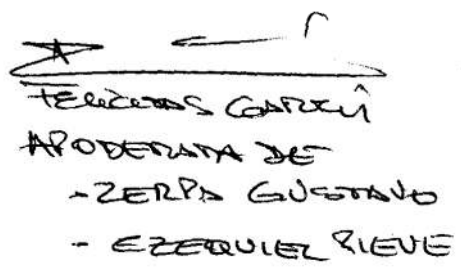 FELICITAS GARCIA
APODERADA DE
- ZERPA GUSTAVO
- EZEQUIEL PIEVE